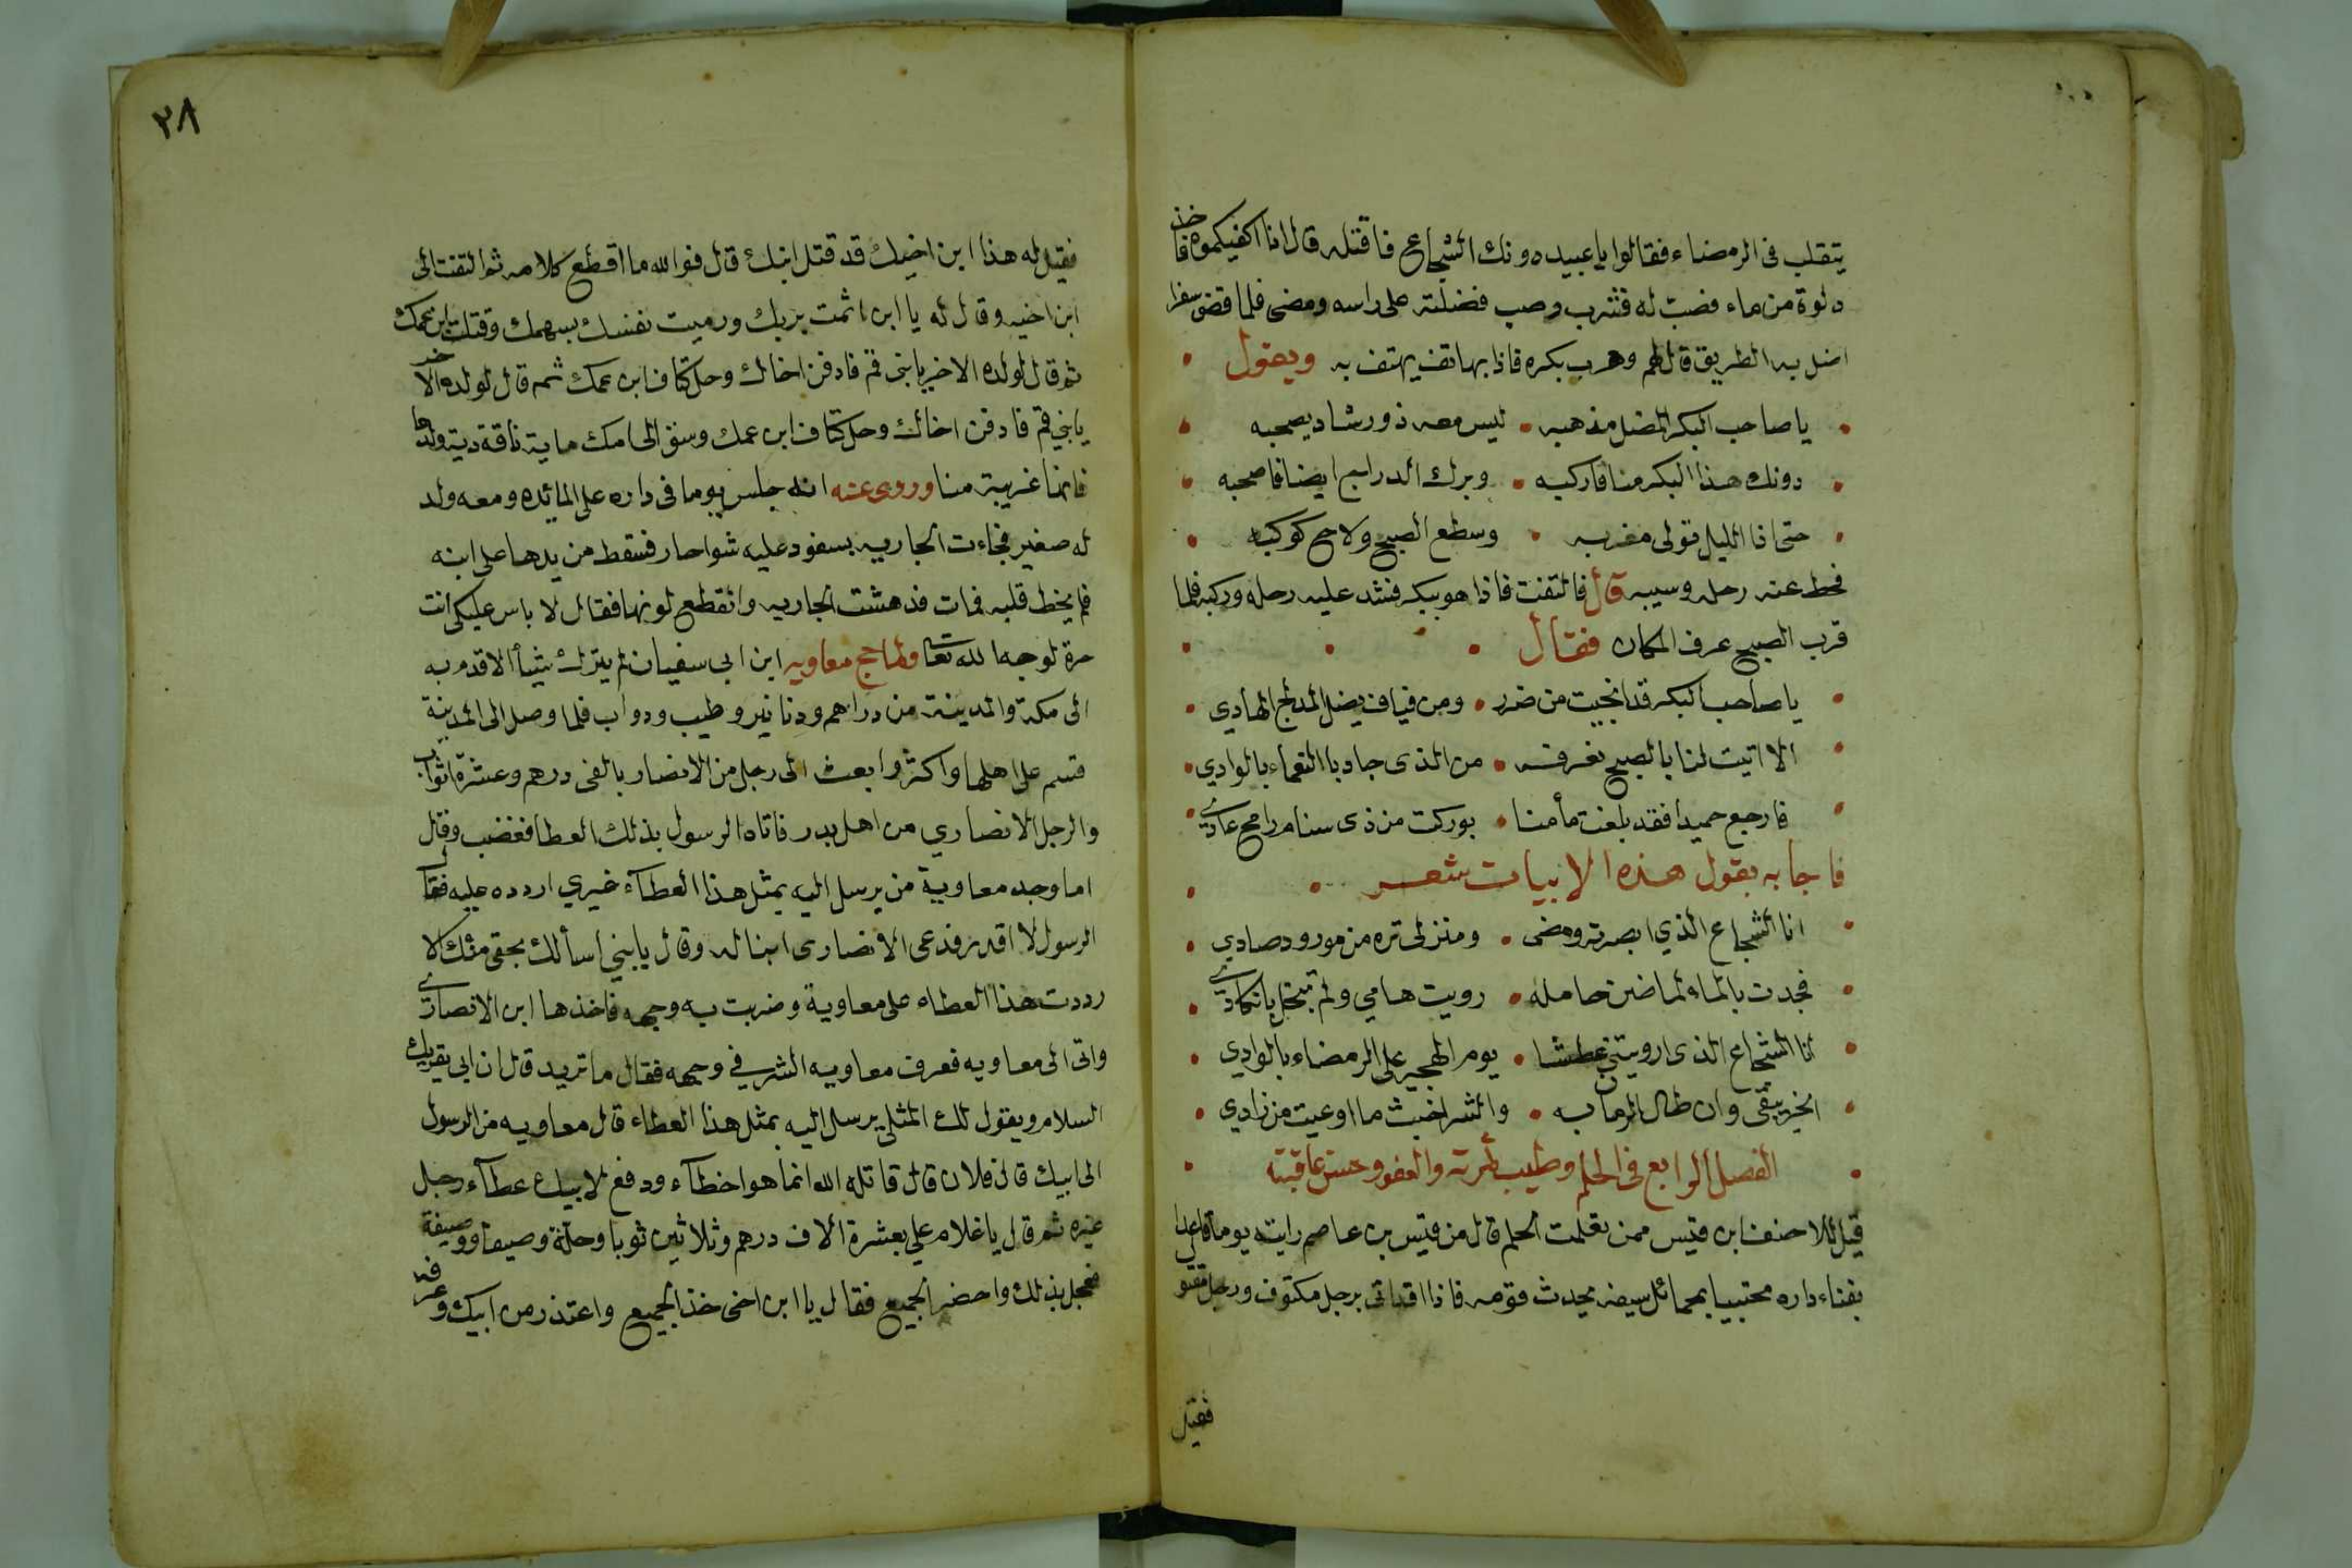 يتقلب فى الرمضاء فقالوا يا عبيد دونك الشجاع فاقتله قال انا اكفيكموه فاخذ
دلوة من ماء فصب له فشرب وصب فضلته على راسه ومضى فلما قضى سفرا
اضل به الطريق قال لهم وهرب بكره فاذا بهاتف يهتف به ويقول
يا صاحب البكر المضل مذهبه • ليس معه ذو رشاد يصحبه
دونك هذا البكر منا فاركبه • وبرك الدراج ايضا فاصحبه
حتى اذا الليل تولى مغربه • وسطع الصبح ولاح كوكبه
فحط عنه رحله وسيبه قال فالتفت فاذا هو ببكر فشد عليه رحله وركبه فلما
قرب الصبح عرف المكان فقال
يا صاحب البكر قد انجيت من ضرر • ومن فياف يضل المدلج الهادي
الا اتيت لنا بالصبح نعرفه • من الذى جاد باالنعماء بالوادي
فارجع حميدا فقد بلغت مأمننا • بوركت من ذى سنام رامح عادي
فاجابه بقول هذه الابيات شعر
انا الشجاع الذي ابصرته ومضى • ومنزلى تره من مورود صادي
فجدت بالماء لما ضن حامله • رويت هامي ولم تبخل بانكادي
انا الشجاع الذى ارويتني عطشا • يوم الهجير على الرمضاء بالوادي
الخير يبقى وان طال الزمان به • والشر اخبث ما اوعيت من زادي
الفصل الرابع فى الحلم وطيب ثمرته والعفو وحسن عاقبته
قيل للاحنف ابن قيس ممن تعلمت الحلم قال من قيس بن عاصم رايته يوما قاعدا
بفناء داره محتبيا بحمائل سيفه يحدث قومه فاذا قد اتى برجل مكتوف ورجل مقتو
فقيل
٢٨
فقيل له هذا ابن اخيك قد قتل ابنك قال فوالله ما اقطع كلامه ثم التفت الى
ابن اخيه وقال له يا ابن اثمت بربك ورميت نفسك بسهمك وقتلت ابن عمك
ثم قال لولده الاخر يابنى قم فادفن اخاك وحل كتاف ابن عمك ثم قال لولده الاخر
يا بني قم فادفن اخاك وحل كتاف ابن عمك وسق الى امك ماية ناقة دية ولدها
فانها غريبة منا وروى عنه انه جلس يوما فى داره على المائده ومعه ولد
له صغير فجاءت الجاريه بسفود عليه شوا حار فسقط من يدها على ابنه
فلم يخط قلبه فمات فدهشت الجاريه وانقطع لونها فقال لا باس عليكى انت
حرة لوجه الله تعا ولما حج معاويه ابن ابى سفيان لم يترك شيأ الا قدم به
الى مكة والمدينة من دراهم ودنانير وطيب ودواب فلما وصل الى المدينة
قسم على اهلها واكثر وابعث الى رجل من الانصار بالفى درهم وعشرة اثواب
والرجل الانصاري من اهل بدر فاتاه الرسول بذلك العطا فغضب وقال
اما وجد معاوية من يرسل اليه بمثل هذا العطآء غيري اردده عليه فقال
الرسول لا اقدر فدعى الانصارى ابنا له وقال يا بني اسألك بحقى منك الا
رددت هذا العطاء على معاوية وضربت به وجهه فاخذها ابن الانصاري
واتى الى معاويه فعرف معاويه الشر في وجهه فقال ما تريد قال ان ابى يقريك
السلام ويقول لك المثلى يرسل اليه بمثل هذا العطاء قال معاويه من الرسول
الى ابيك قال فلان قال قاتله الله انما هوا خطآء ودفع لابيك عطآء رجل
غيره ثم قال يا غلام علي بعشرة الاف درهم وثلاثين ثوبا وحلة وصيفا ووصيفة
فعجل بذلك واحضر الجميع فقال يا ابن اخى خذ الجميع واعتذر من ابيك وعرفه